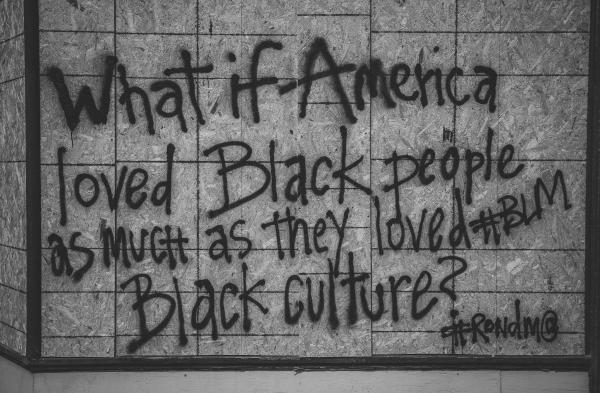 What if America
loved Black people
as much as they loved #BLM
Black culture?
#RoNdM@